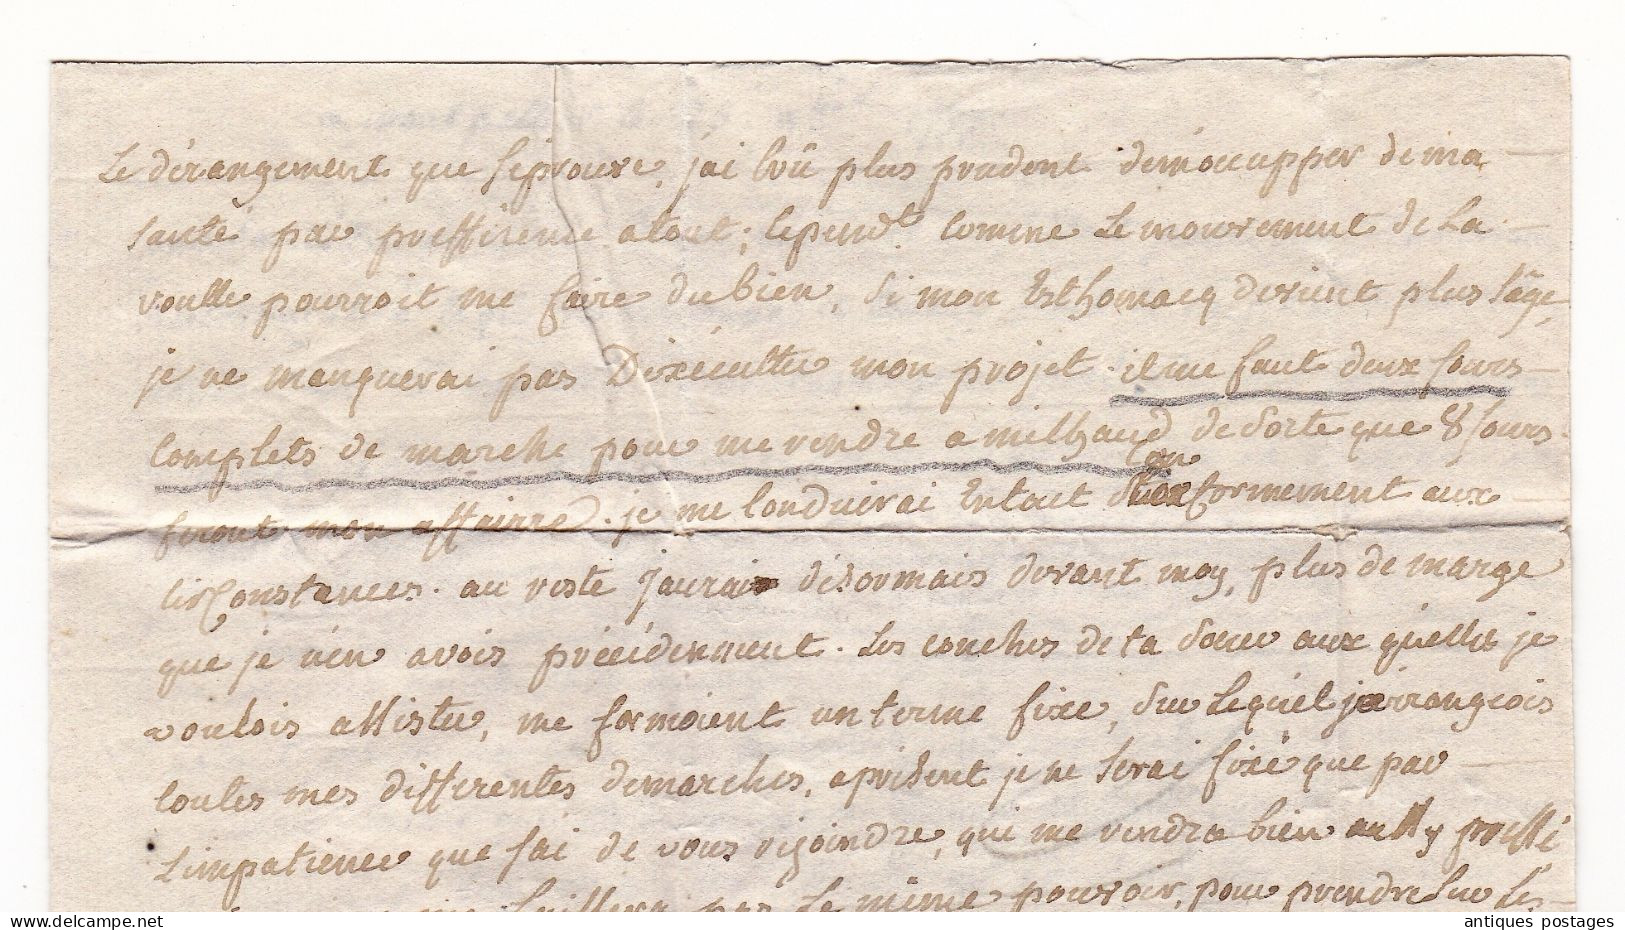 Le dérangement que j'éprouve, j'ai crû plus prudent de m'occupper de ma
santé par préfférence a tout; cepend.t comme le mouvement de la
voulte pourroit me faire du bien, si mon Esthomacq devient plus sâge,
je ne manquerai pas D'exécutter mon projet. il me faut deux jours
complets de marche pour me rendre a milhaud de sorte que 8 jours
feront mon affairre. je me conduirai En tout conformement aux
circonstances. au reste j'aurai désormais devant moy, plus de marge
que je n'en avois précédemment. Les couches de ta soeur aux quélles je
voulois assister, me formoient un terme fixe, sur lequél j'arrangeois
toutes mes différentes demarches, a présent je ne serai fixé que par
L'impatience que j'ai de vous rejoindre, qui me rendra bien aussy pressé
laissera pas le même pouvoir, pour prendre sur les
antiques postages